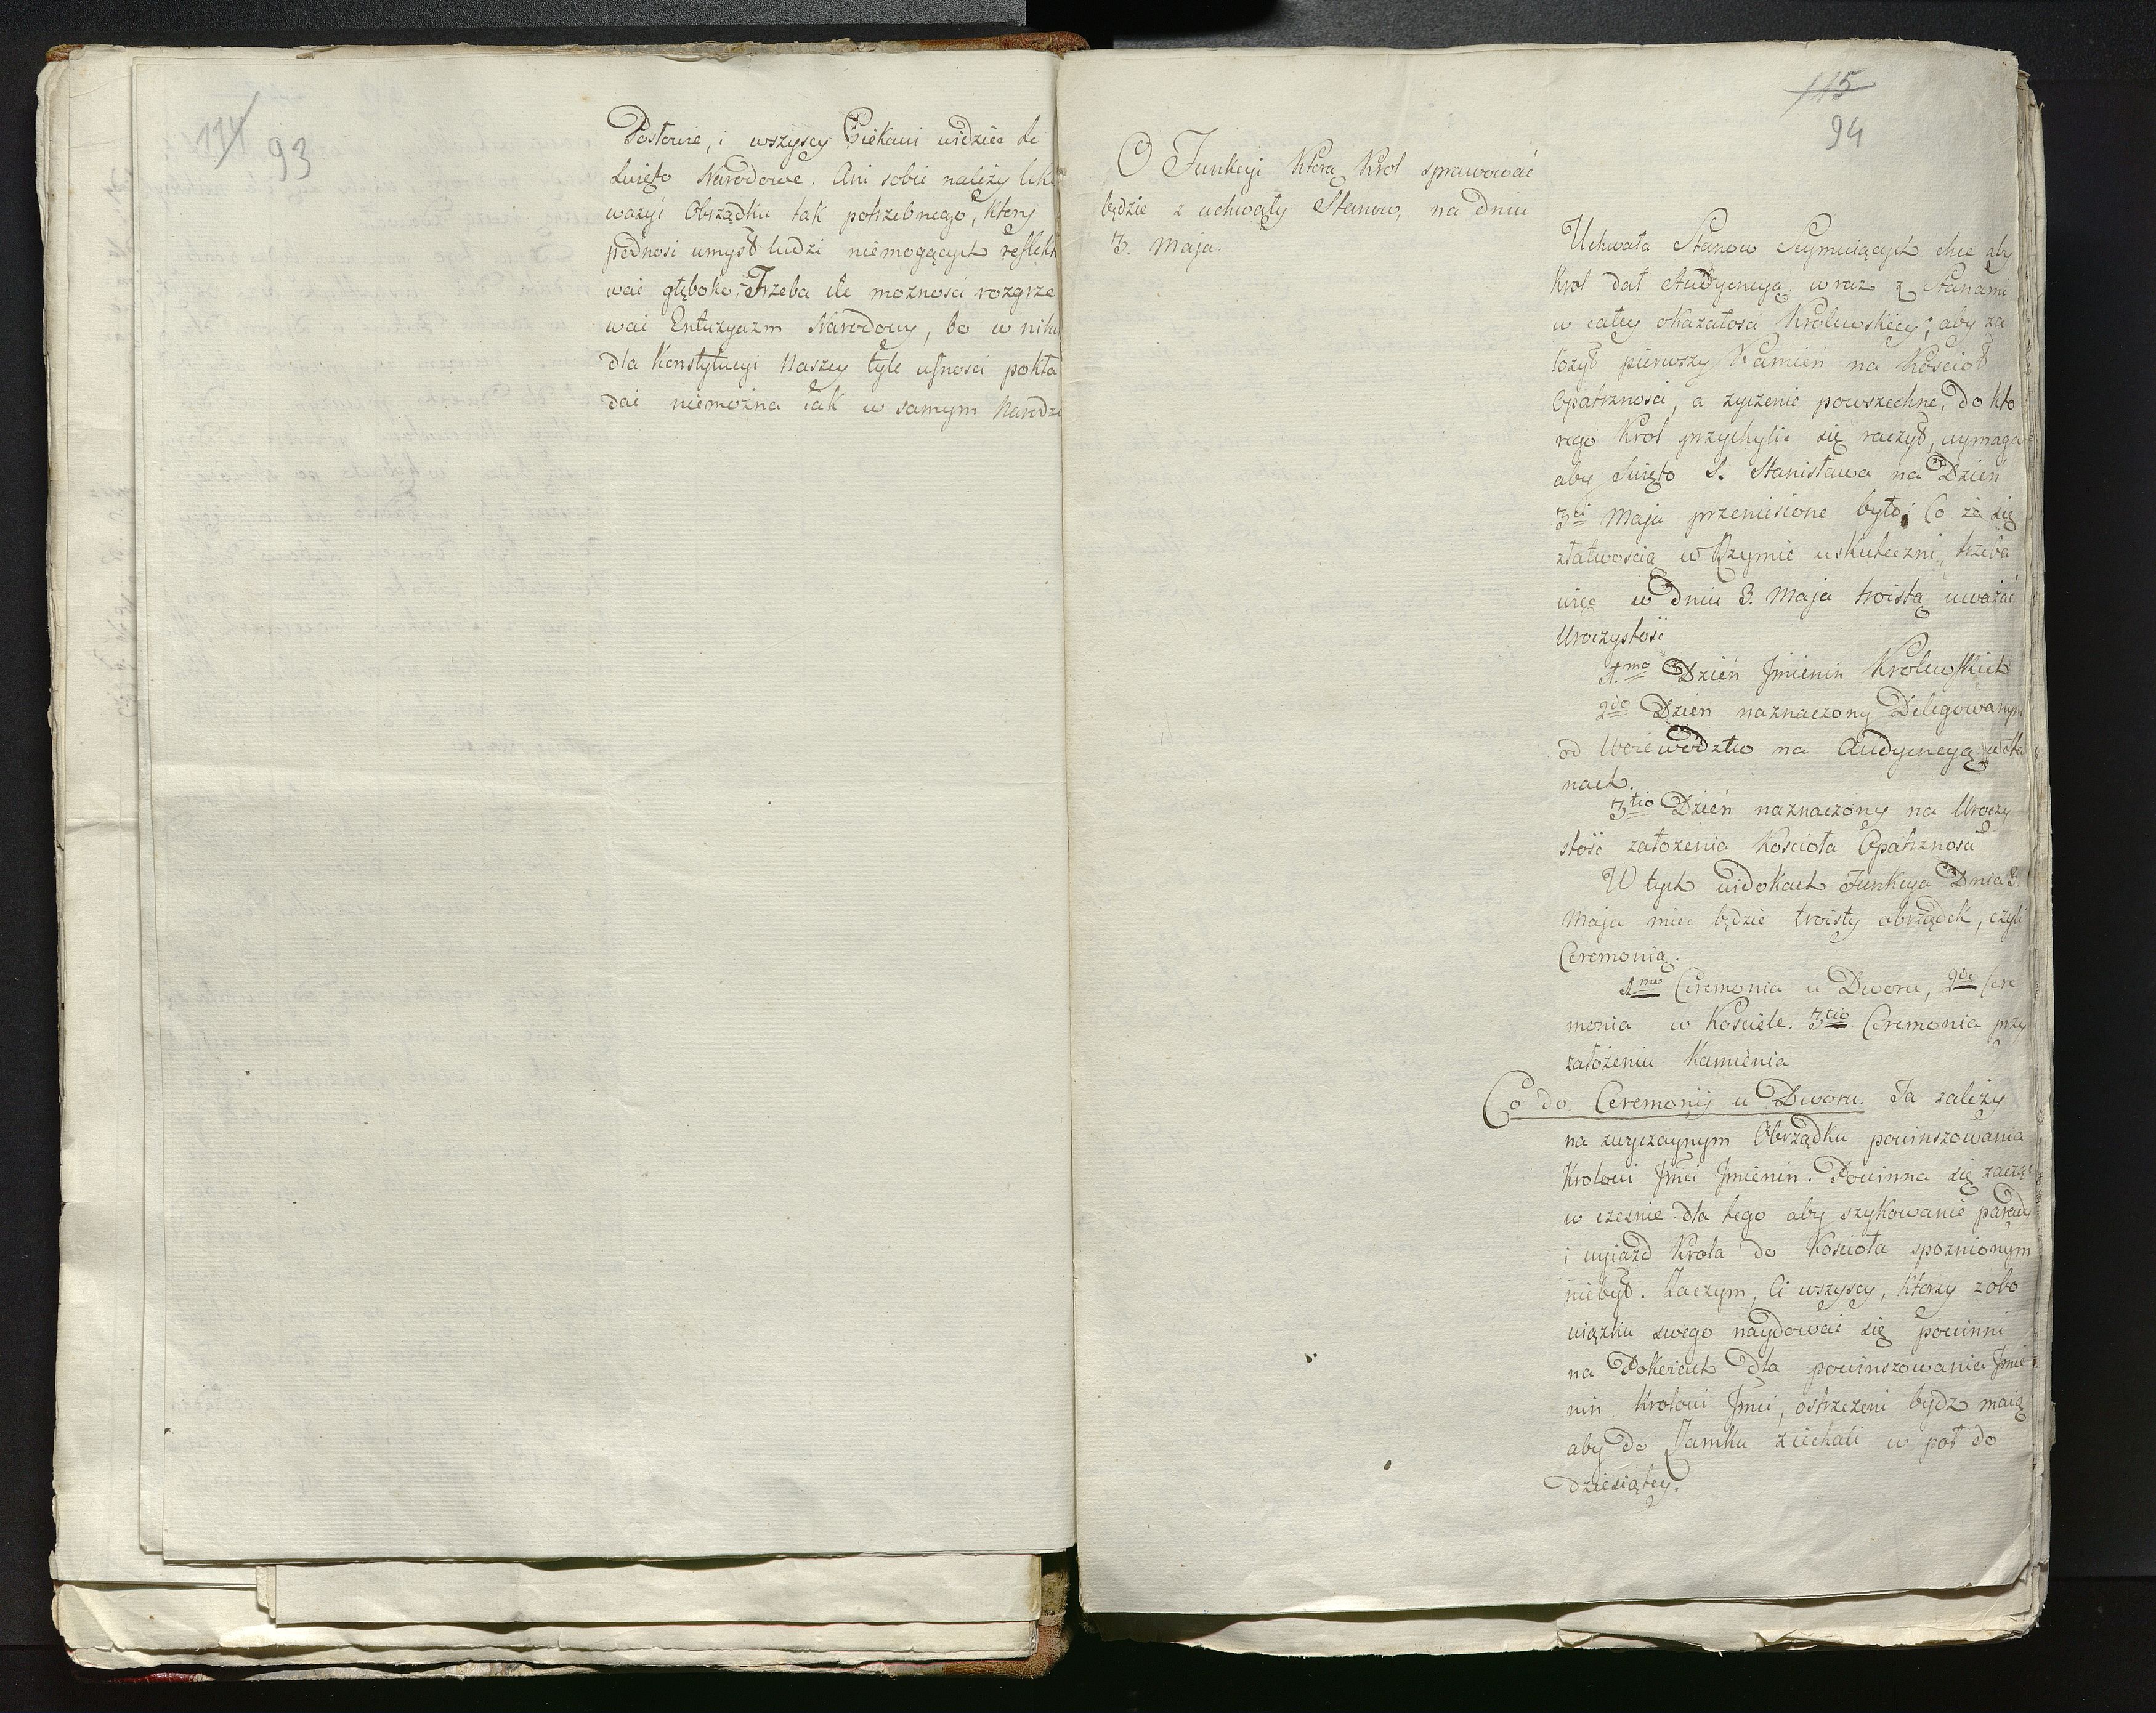 114
93
Posłowie, i wszyscy Ciekawi widzieć te
Swięto Narodowe. Ani sobie należy lekce
ważyć Obrządku tak potrzebnego, ktory
podnosi umysł ludzi niemogących reflekto
wać głęboko. Trzeba ile możnosci rozgrze
wać Entuzyazm Narodowy, bo w nikim
dla Konstytucyi Naszey tyle ufnosci pokła
dać niemożna iak w samym Narodzie
115
94
O Funkcyi Którą Krol sprawować
będzie z uchwały Stanow, na dniu
3. Maja.
Uchwała Stanow Seymuiących chce aby
Krol dał Audyencyą wraz z Stanami
w całey okazałosci Krolewskiey; aby za
łożył pierwszy Kamień na Kościoł
Opatrznosci, a życzenie powszechne, do kto
rego Krol przychylić się raczył, wymaga
aby Swięto S. Stanisława na Dzień
3ci Maja przeniesione było; Co że się
złatwoscią w Rzymie uskuteczni, trzeba
więc w dniu 3. Maja troistą uważać
Uroczystość
1.mo Dzień Jmienin Krolewskich
2do Dzień naznaczony Delegowanym
od Woiewództw na Audyencyą w Sta
nach.
3tio Dzień naznaczony na Uroczy
stość założenia Kościoła Opatrznosci
W tych widokach Funkcya Dnia 3.
Maja mieć będzie troisty obrządek, czyli
Ceremonią.
1mo Ceremonia u Dworu, 2do Cere
monia w Kościele. 3tio Ceremonia przy
założeniu Kamienia
Co do Ceremonij u Dworu. Ta zależy
na zwyczaynym Obrządku powinszowania
Krolowi Jmci Jmienin. Powinna się zacząć
w cześnie dla tego aby szykowanie parady
i wyiazd Krola do Kościoła spoznionym
niebył. Zaczym, Ci wszyscy, ktorzy z obo
wiązku swego naydować się powinni
na Pokoiach dla powinszowania Jmie
nin Krolowi Jmci, ostrzeżeni bydz maią
aby do Zamku ziechali w poł do
dziesiątey.